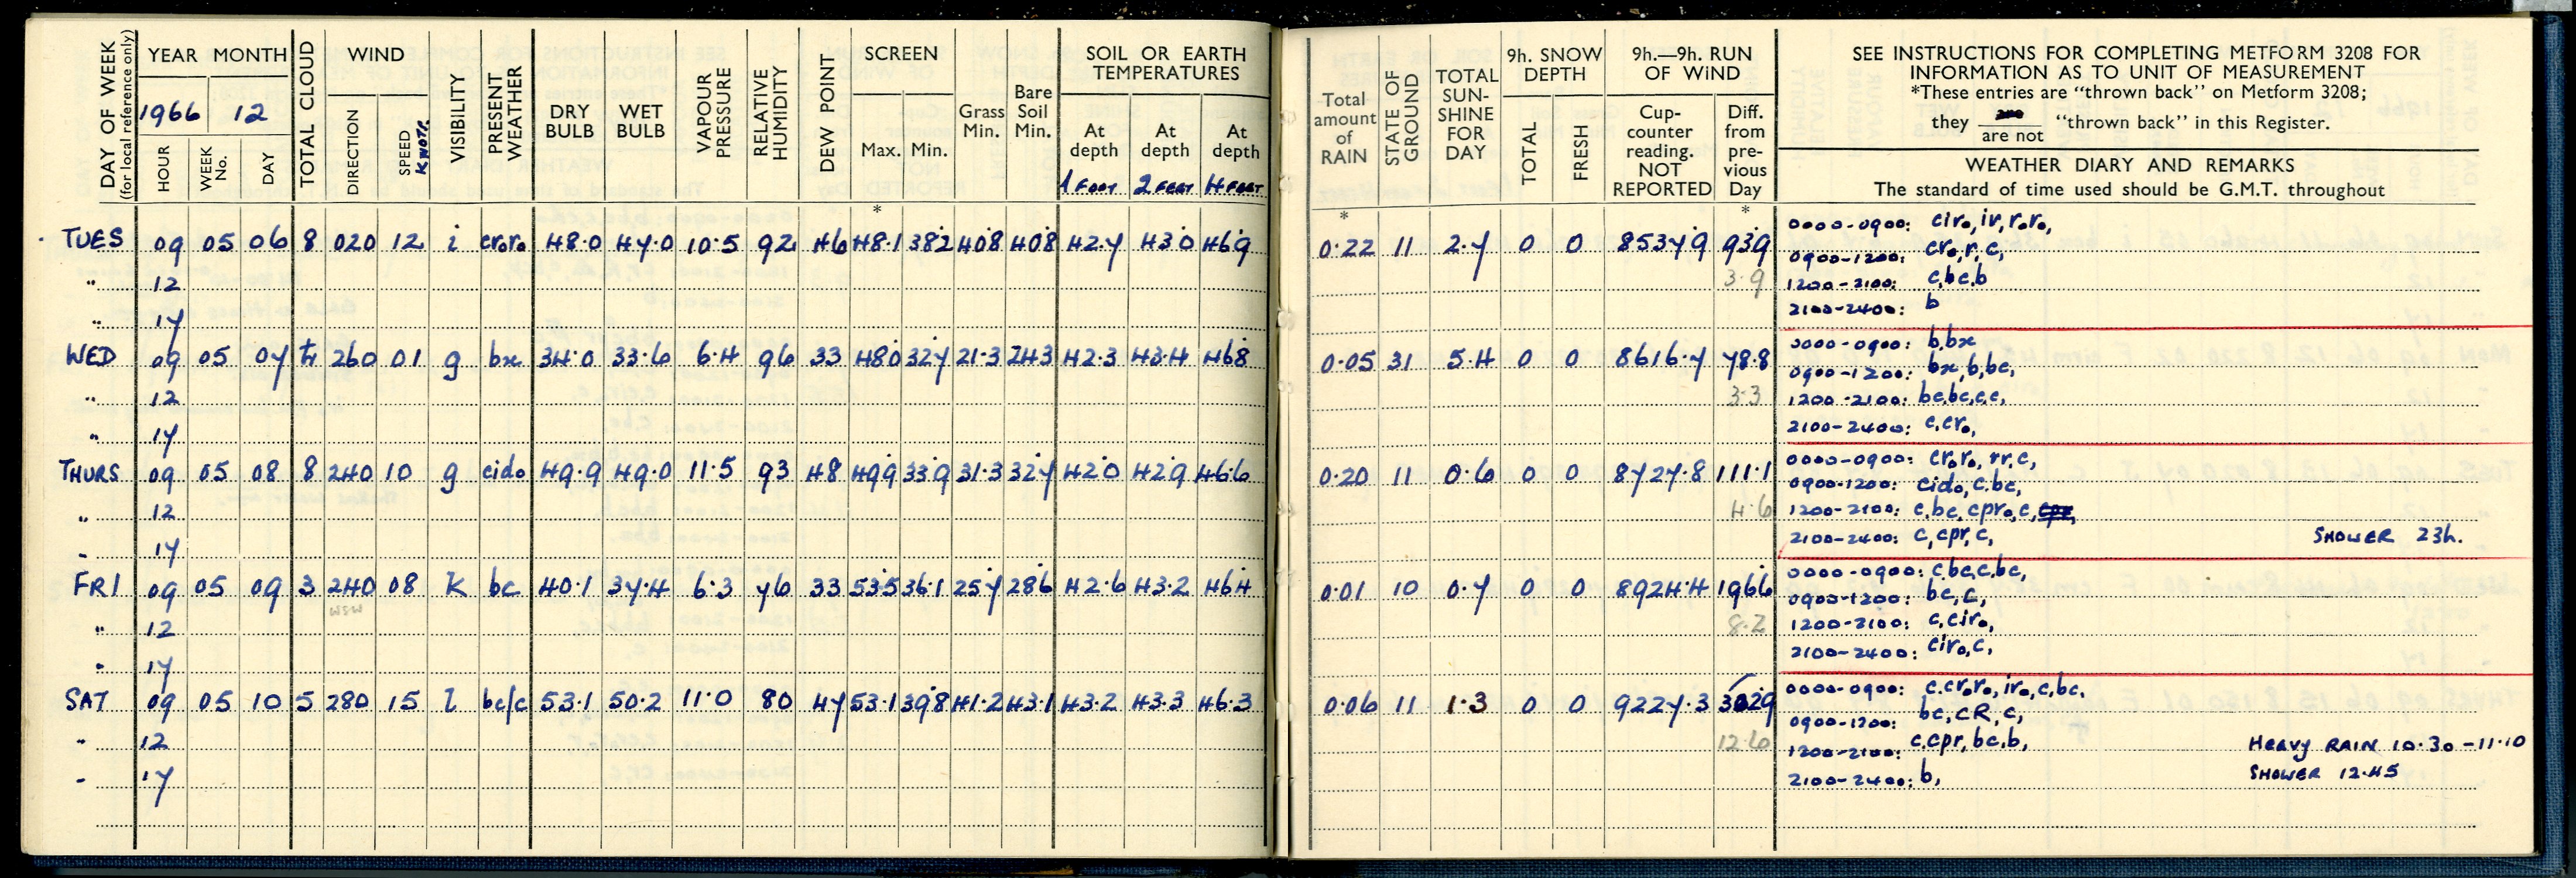 DAY OF WEEK
(for local reference only)
YEAR MONTH
1966 12
HOUR
WEEK No.
DAY
TOTAL CLOUD
WIND
DIRECTION
SPEED KNOTS
VISIBILITY
PRESENT WEATHER
DRY BULB
WET BULB
VAPOUR PRESSURE
RELATIVE HUMIDITY
DEW POINT
SCREEN
Max. Min.
*
Grass Min.
Bare Soil Min.
SOIL OR EARTH TEMPERATURES
At depth 1 FOOT
At depth 2 FEET
At depth 4 FEET
Total amount of RAIN
*
STATE OF GROUND
TOTAL SUN-SHINE FOR DAY
9h. SNOW DEPTH
TOTAL
FRESH
9h.—9h. RUN OF WIND
Cup-counter reading. NOT REPORTED
Diff. from pre-vious Day
*
SEE INSTRUCTIONS FOR COMPLETING METFORM 3208 FOR
INFORMATION AS TO UNIT OF MEASUREMENT
*These entries are "thrown back" on Metform 3208;
they are / are not "thrown back" in this Register.
WEATHER DIARY AND REMARKS
The standard of time used should be G.M.T. throughout
TUES 09 05 06 8 020 12 i croro 48.0 47.0 10.5 92 46 48.1 38.2 40.8 40.8 42.7 43.0 46.9 0.22 11 2.7 0 0 8537.9 93.9
3.9
0000-0900: ciro, ir, roro,
0900-1200: cro, r, c,
" 12 1200-2100: c, bc, b
" 17 2100-2400: b
WED 09 05 07 tr 260 01 g bx 34.0 33.6 6.4 96 33 48.0 32.7 21.3 24.3 42.3 43.4 46.8 0.05 31 5.4 0 0 8616.7 78.8
3.3
0000-0900: b, bx
0900-1200: bx, b, bc,
" 12 1200-2100: bc, bc, c, c,
" 17 2100-2400: c, cro,
THURS 09 05 08 8 240 10 g cido 49.9 49.0 11.5 93 48 49.9 33.9 31.3 32.7 42.0 42.9 46.6 0.20 11 0.6 0 0 8727.8 111.1
4.6
0000-0900: croro, rr, c,
0900-1200: cido, c, bc,
" 12 1200-2100: c, bc, cpro, c, cpr,
" 17 2100-2400: c, cpr, c, SHOWER 23h.
FRI 09 05 09 3 240 08 K bc 40.1 37.4 6.3 76 33 53.5 36.1 25.7 28.6 42.6 43.2 46.4 0.01 10 0.7 0 0 8924.4 196.6
WSW
8.2
0000-0900: c, bc, c, bc,
0900-1200: bc, c,
" 12 1200-2100: c, ciro,
" 17 2100-2400: ciro, c,
SAT 09 05 10 5 280 15 l bc/c 53.1 50.2 11.0 80 47 53.1 39.8 41.2 43.1 43.2 43.3 46.3 0.06 11 1.3 0 0 9227.3 302.9
12.6
0000-0900: c, croro, iro, c, bc,
0900-1200: bc, CR, c,
" 12 1200-2100: c, cpr, bc, b, Heavy RAIN 10.30-11.10
" 17 2100-2400: b, SHOWER 12.45